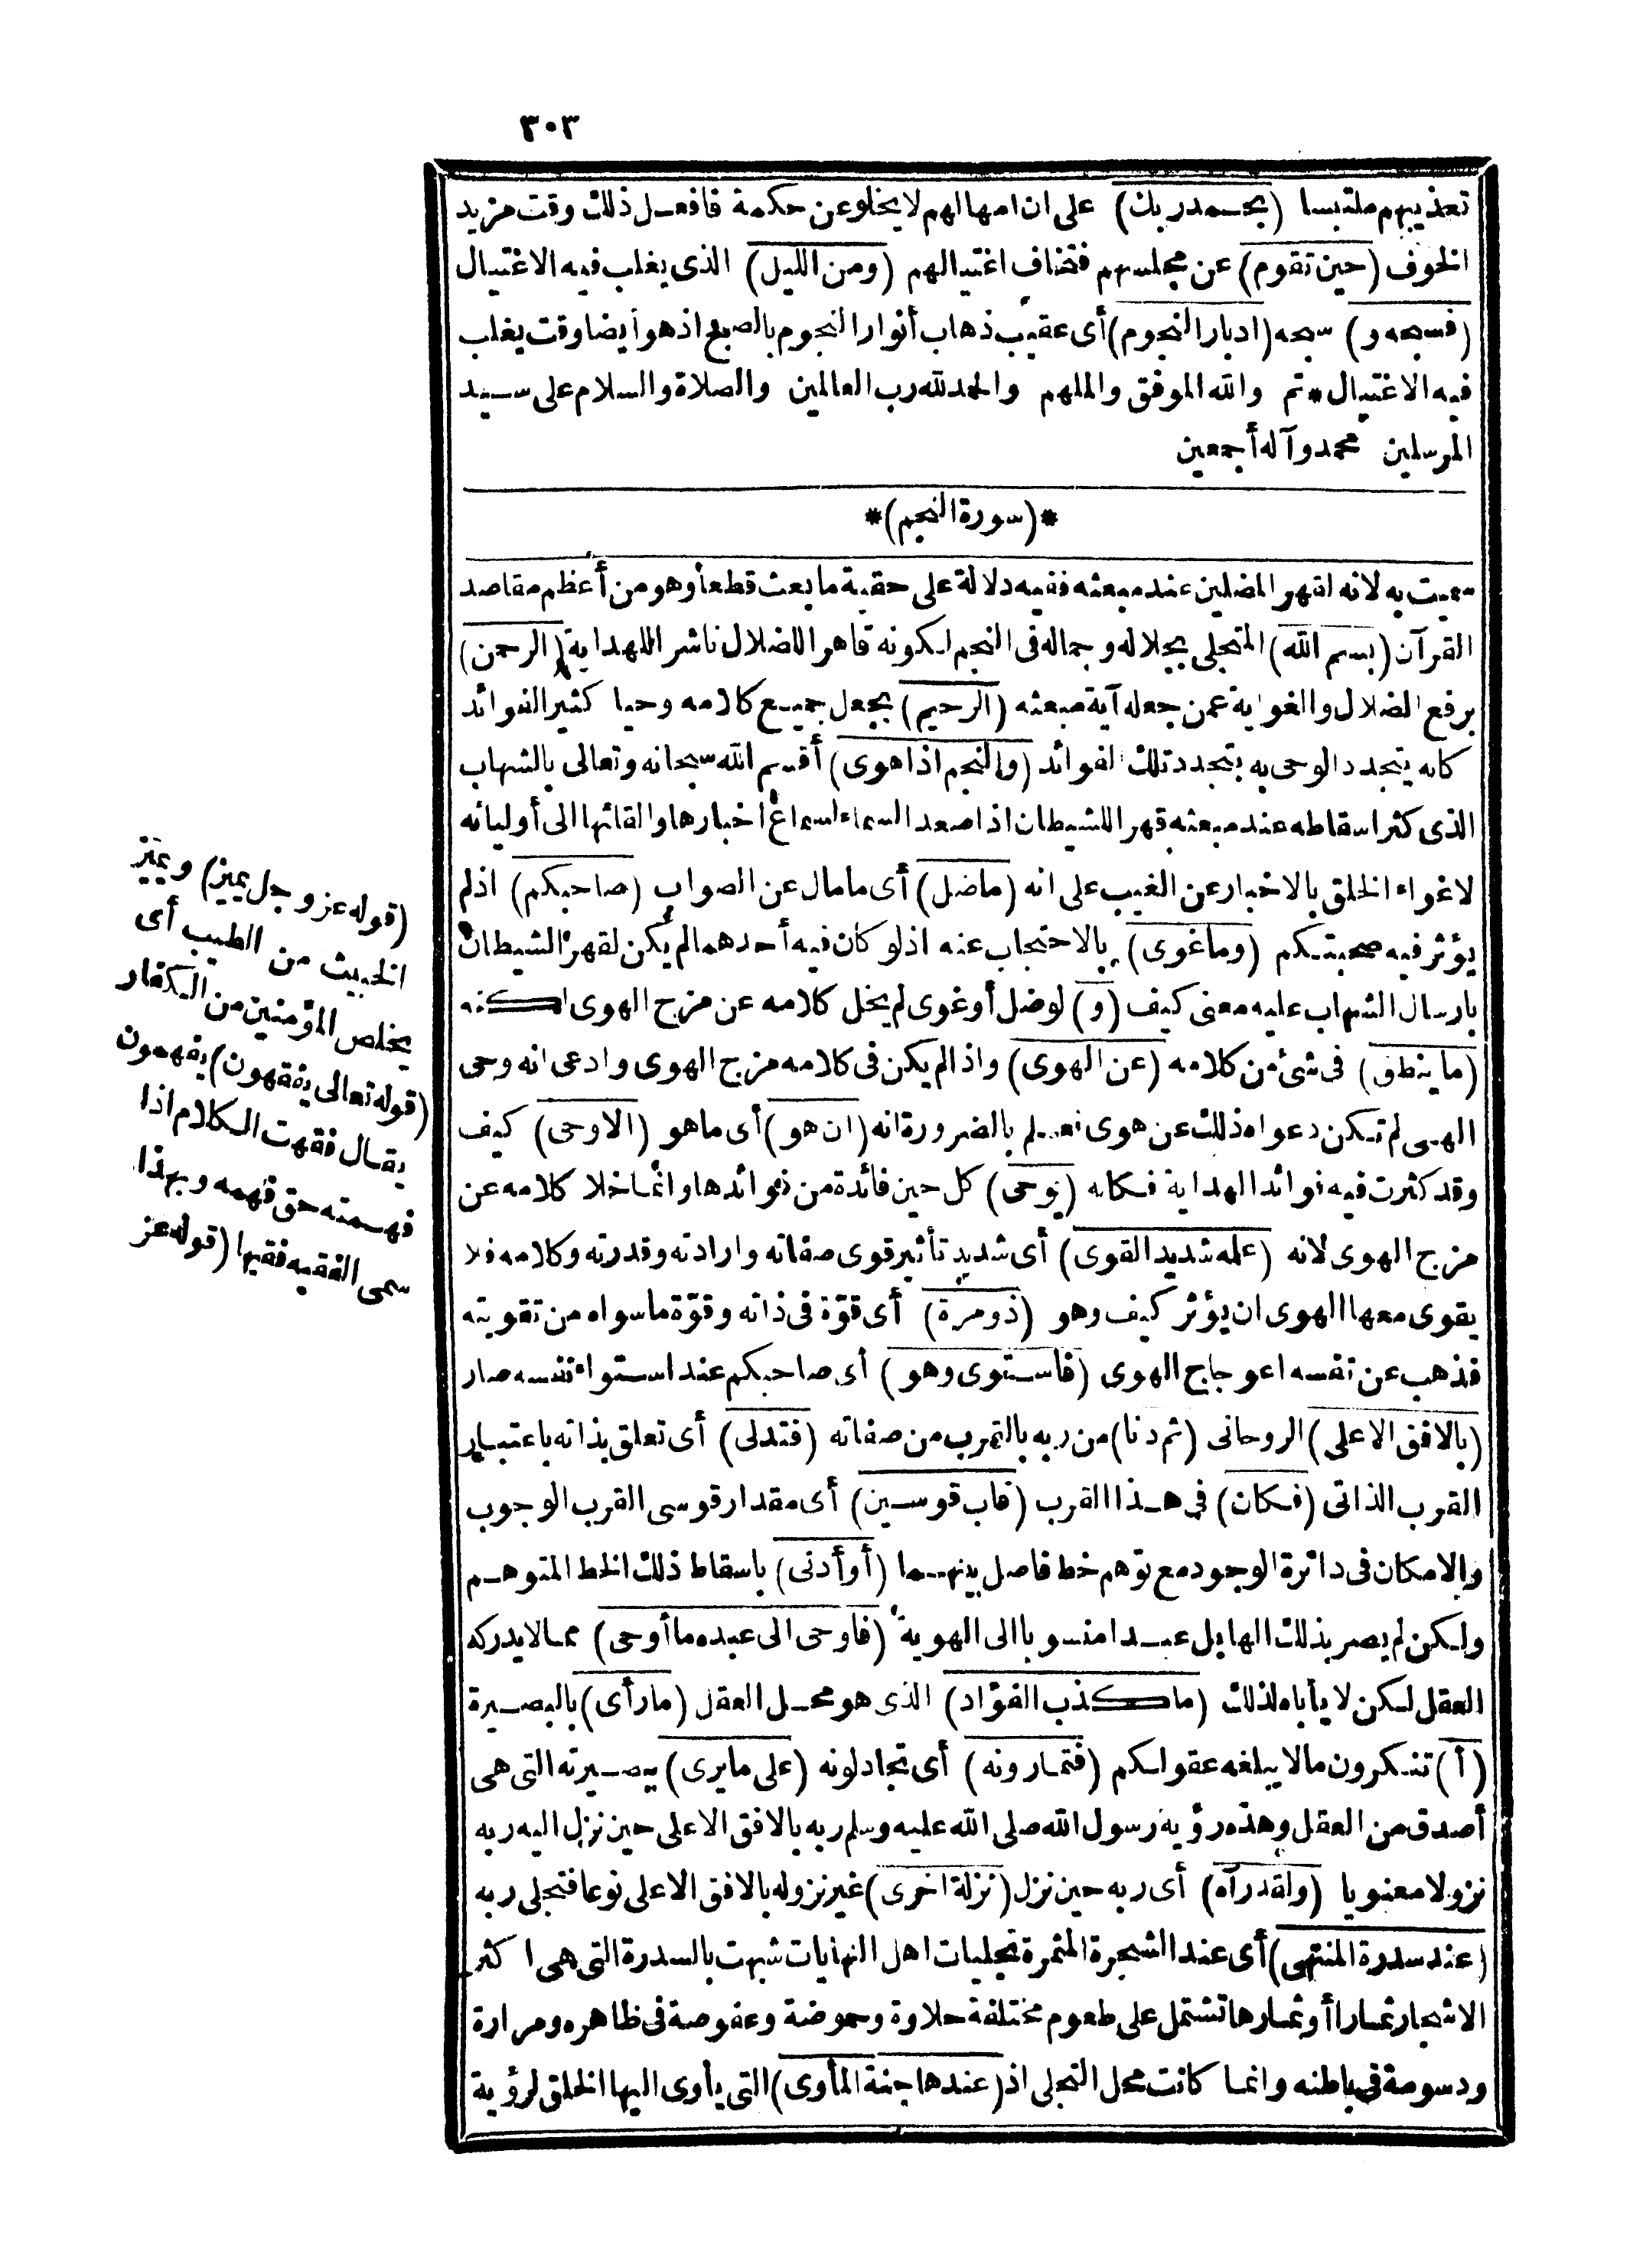 ٣٠٣
تعذيبهم ملتبسا (بحمد ربك) على ان امهالهم لا يخلو عن حكمة فافعل ذلك وقت مزيد
الخوف (حين تقوم) عن مجلسهم فتخاف اغتيالهم (ومن الليل) الذى يغلب فيه الاغتيال
(فسبحه و) سبحه (ادبار النجوم) أى عقيب ذهاب أنوار النجوم بالصبح اذ هو أيضا وقت يغلب
فيه الاغتيال * تم والله الموفق والملهم والحمد لله رب العالمين والصلاة والسلام على سيد
المرسلين محمد وآله أجمعين
*(سورة النجم)*
سميت به لانه لقهر المضلين عند مبعثه ففيه دلالة على حقية ما بعث قطعا وهو من أعظم مقاصد
القرآن (بسم الله) المتجلى بجلاله وجماله فى النجم لكونه قاهرا للضلال ناشرا للهداية (الرحمن)
برفع الضلال والغواية عمن جعله آية مبعثه (الرحيم) بجعل جميع كلامه وحيا كثير الفوائد
كانه يتجدد الوحى به بتجدد تلك الفوائد (والنجم اذا هوى) أقسم الله سبحانه وتعالى بالشهاب
الذى كثر اسقاطه عند مبعثه قهرا للشيطان اذا صعد السماء لسماع اخبارها والقائها الى أوليائه
لاغواء الخلق بالاخبار عن الغيب على انه (ماضل) أى مامال عن الصواب (صاحبكم) اذلم
يؤثر فيه صحبتكم (وماغوى) بالاحتجاب عنه اذ لو كان فيه أحدهما لم يكن لقهر الشيطان
بارسال الشهاب عليه معنى كيف (و) لوضل أوغوى لم يخل كلامه عن مزج الهوى لكنه
(ما ينطق) فى شئ من كلامه (عن الهوى) واذا لم يكن فى كلامه مزج الهوى وادعى انه وحى
الهى لم تكن دعواه ذلك عن هوى نعلم بالضرورة انه (ان هو) أى ماهو (الا وحى) كيف
وقد كثرت فيه فوائد الهداية فكانه (يوحى) كل حين فائدة من فوائدها وانما خلا كلامه عن
مزج الهوى لانه (علمه شديد القوى) أى شديد تأثير قوى صفاته وارادته وقدرته وكلامه فلا
يقوى معها الهوى ان يؤثر كيف وهو (ذومرة) أى قوّة فى ذاته وقوّة ما سواه من تقويته
فذهب عن نفسه اعوجاج الهوى (فاستوى وهو) أى صاحبكم عند استواء نفسه صار
(بالافق الاعلى) الروحانى (ثم دنا) من ربه بالتقرب من صفاته (فتدلى) أى تعلق بذاته باعتبار
القرب الذاتى (فكان) فى هذا القرب (قاب قوسين) أى مقدار قوسى القرب الوجوب
والامكان فى دائرة الوجود مع توهم خط فاصل بينهما (أو أدنى) باسقاط ذلك الخط المتوهم
ولكن لم يصر بذلك الها بل عبدا منسوبا الى الهوية (فاوحى الى عبده ما أوحى) مما لا يدركه
العقل لكن لا يأباه لذلك (ما كذب الفؤاد) الذى هو محل العقل (مارأى) بالبصيرة
(أ) تنكرون مالا يبلغه عقولكم (فتمارونه) أى تجادلونه (على ما يرى) ببصيرته التى هى
أصدق من العقل وهذه رؤية رسول الله صلى الله عليه وسلم ربه بالافق الاعلى حين نزل اليه ربه
نزولا معنويا (ولقد رآه) أى ربه حين نزل (نزلة اخرى) غير نزوله بالافق الاعلى نوعا فتجلى ربه
(عند سدرة المنتهى) أى عند الشجرة المثمرة تجليات اهل النهايات شبهت بالسدرة التى هى اكثر
الاشجار ثمارا أو ثمارها تشتمل على طعوم مختلفة حلاوة وحموضة وعفوصة فى ظاهره ومرارة
ودسومة فى باطنه وانما كانت محل التجلى اذ (عندها جنة المأوى) التى يأوى اليها الخلق لرؤية
(قوله عز وجل يميز) ويميز
الخبيث من الطيب أى
يخلص المؤمنين من الكفار
(قوله تعالى يفقهون) يفهمون
يقال فقهت الكلام اذا
فهمته حق فهمه وبهذا
سمى الفقيه فقيها (قوله عز